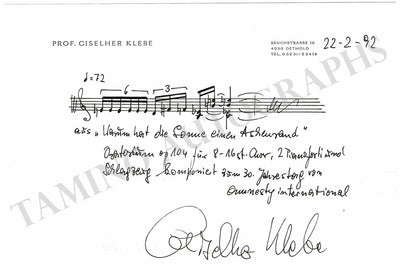 PROF. GISELHER KLEBE
BRUCHSTRASSE 16
4930 DETMOLD
TEL. 05231/23414
22-2-92
♩=72
6 3
aus „Warum hat die Sonne einen Aschenrand"
Oratorium op 104 für 8-16 st. Chor, 2 Pianoforti und
Schlagzeug komponiert zum 30. Jahrestag von
amnesty international
Giselher Klebe
TAMINO AUTOGRAPHS